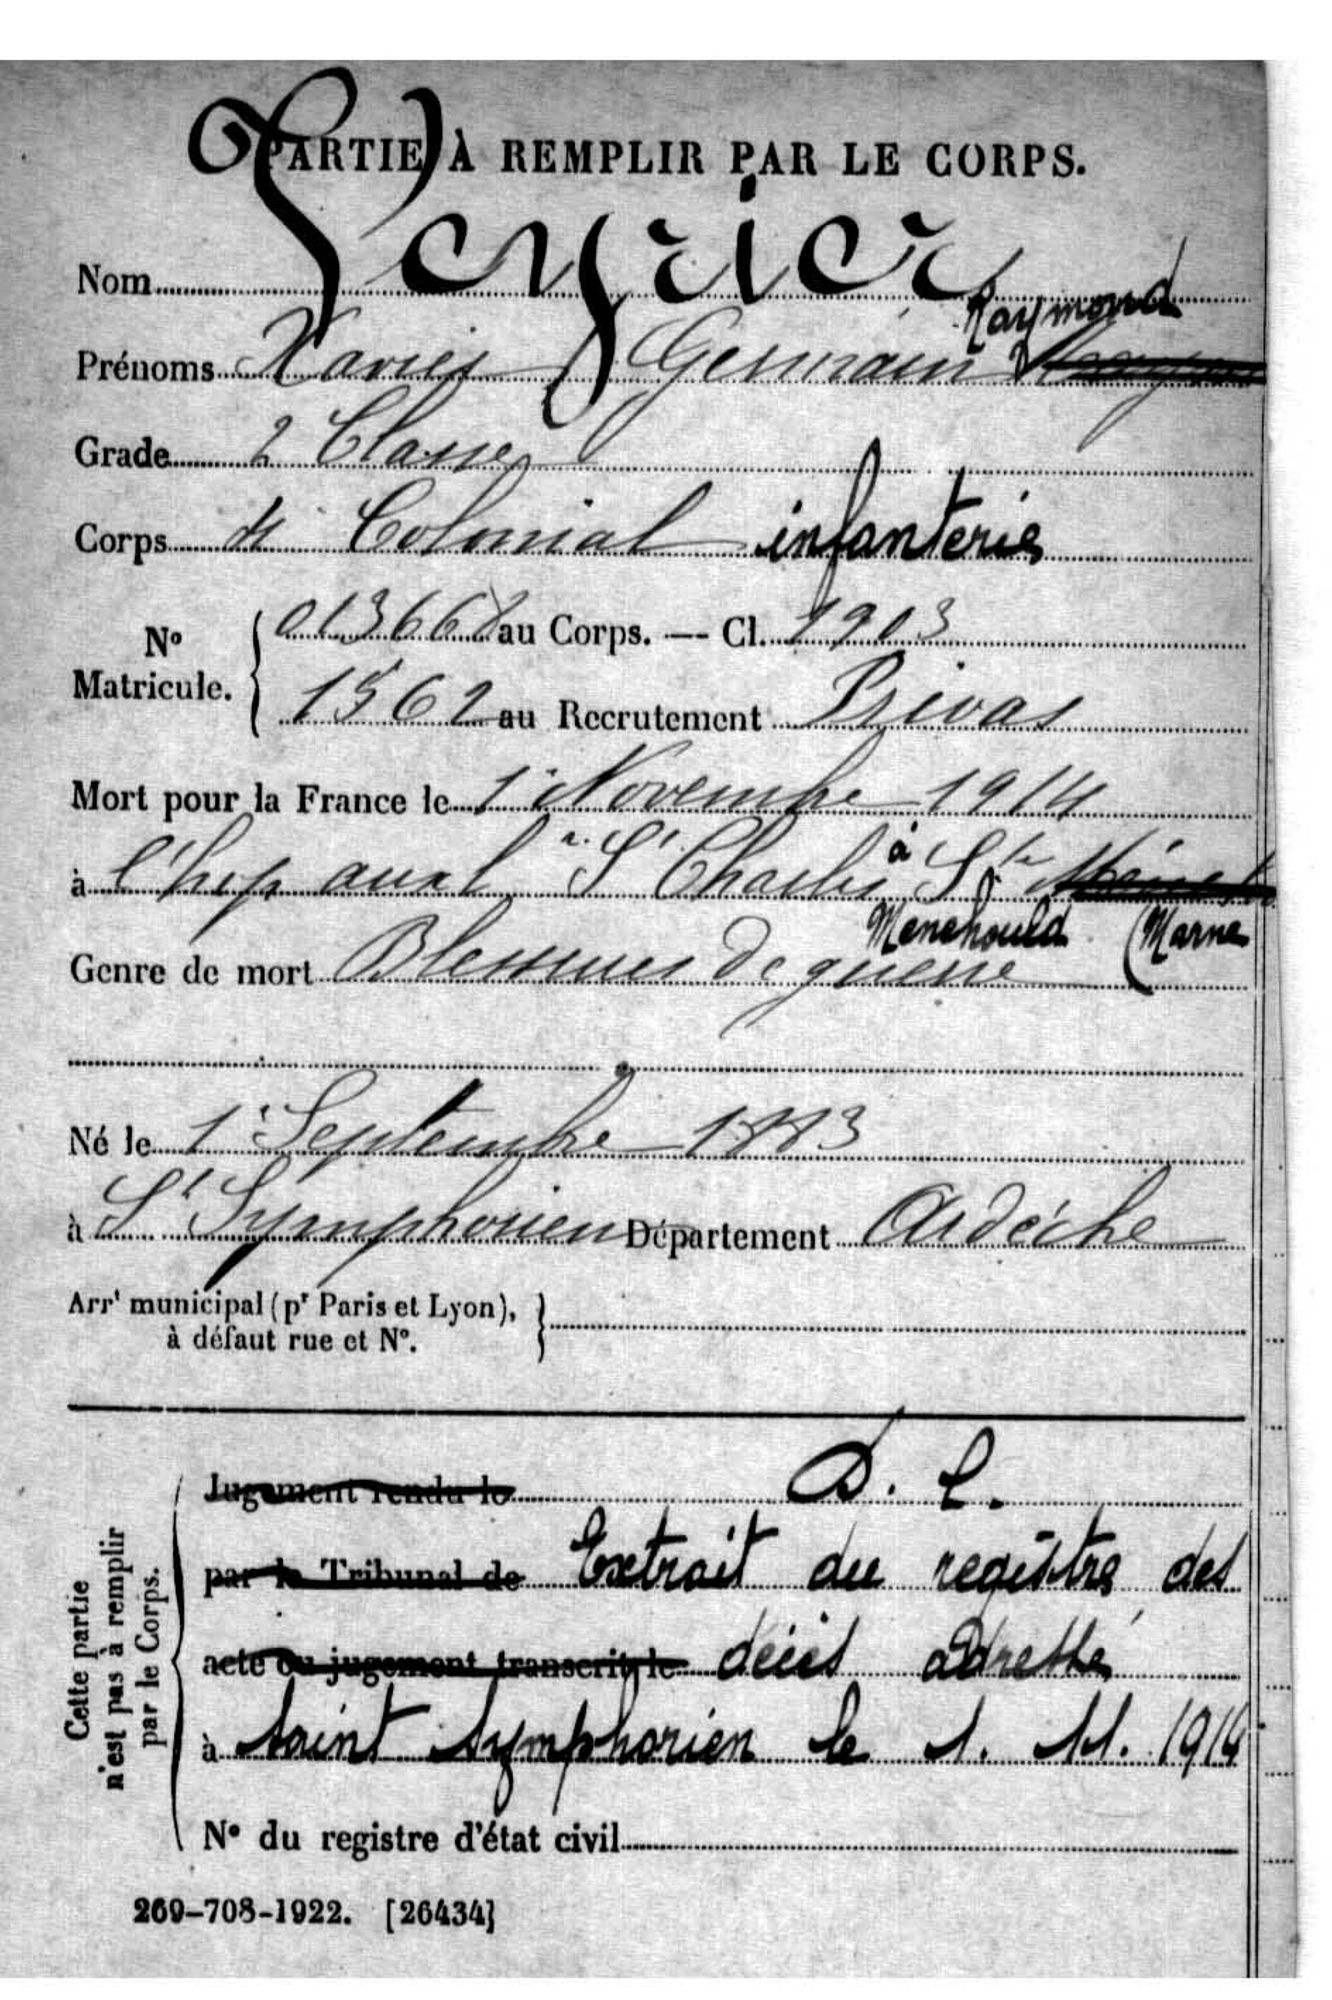 PARTIE À REMPLIR PAR LE CORPS.
Nom Peyrier
Raymond
Prénoms Xavier Germain
Grade 2 Classe
Corps 4 Colonial infanterie
No Matricule. 013668 au Corps. — Cl. 1903
1562 au Recrutement Privas
Mort pour la France le 1r Novembre 1914
à l'hop auxl St Charles à Ste
Menehould (Marne
Genre de mort Blessures de guerre
Né le 1r Septembre 1883
à St Symphorien Département Ardèche
Arrt municipal (pr Paris et Lyon),
à défaut rue et No.
Cette partie
n'est pas à remplir
par le Corps.
Jugement rendu le D. C.
par le Tribunal de Extrait du registre des
acte ou jugement transcrit le décès adressé
à Saint Symphorien le 1. 11. 1914
No du registre d'état civil
269-708-1922. [26434]